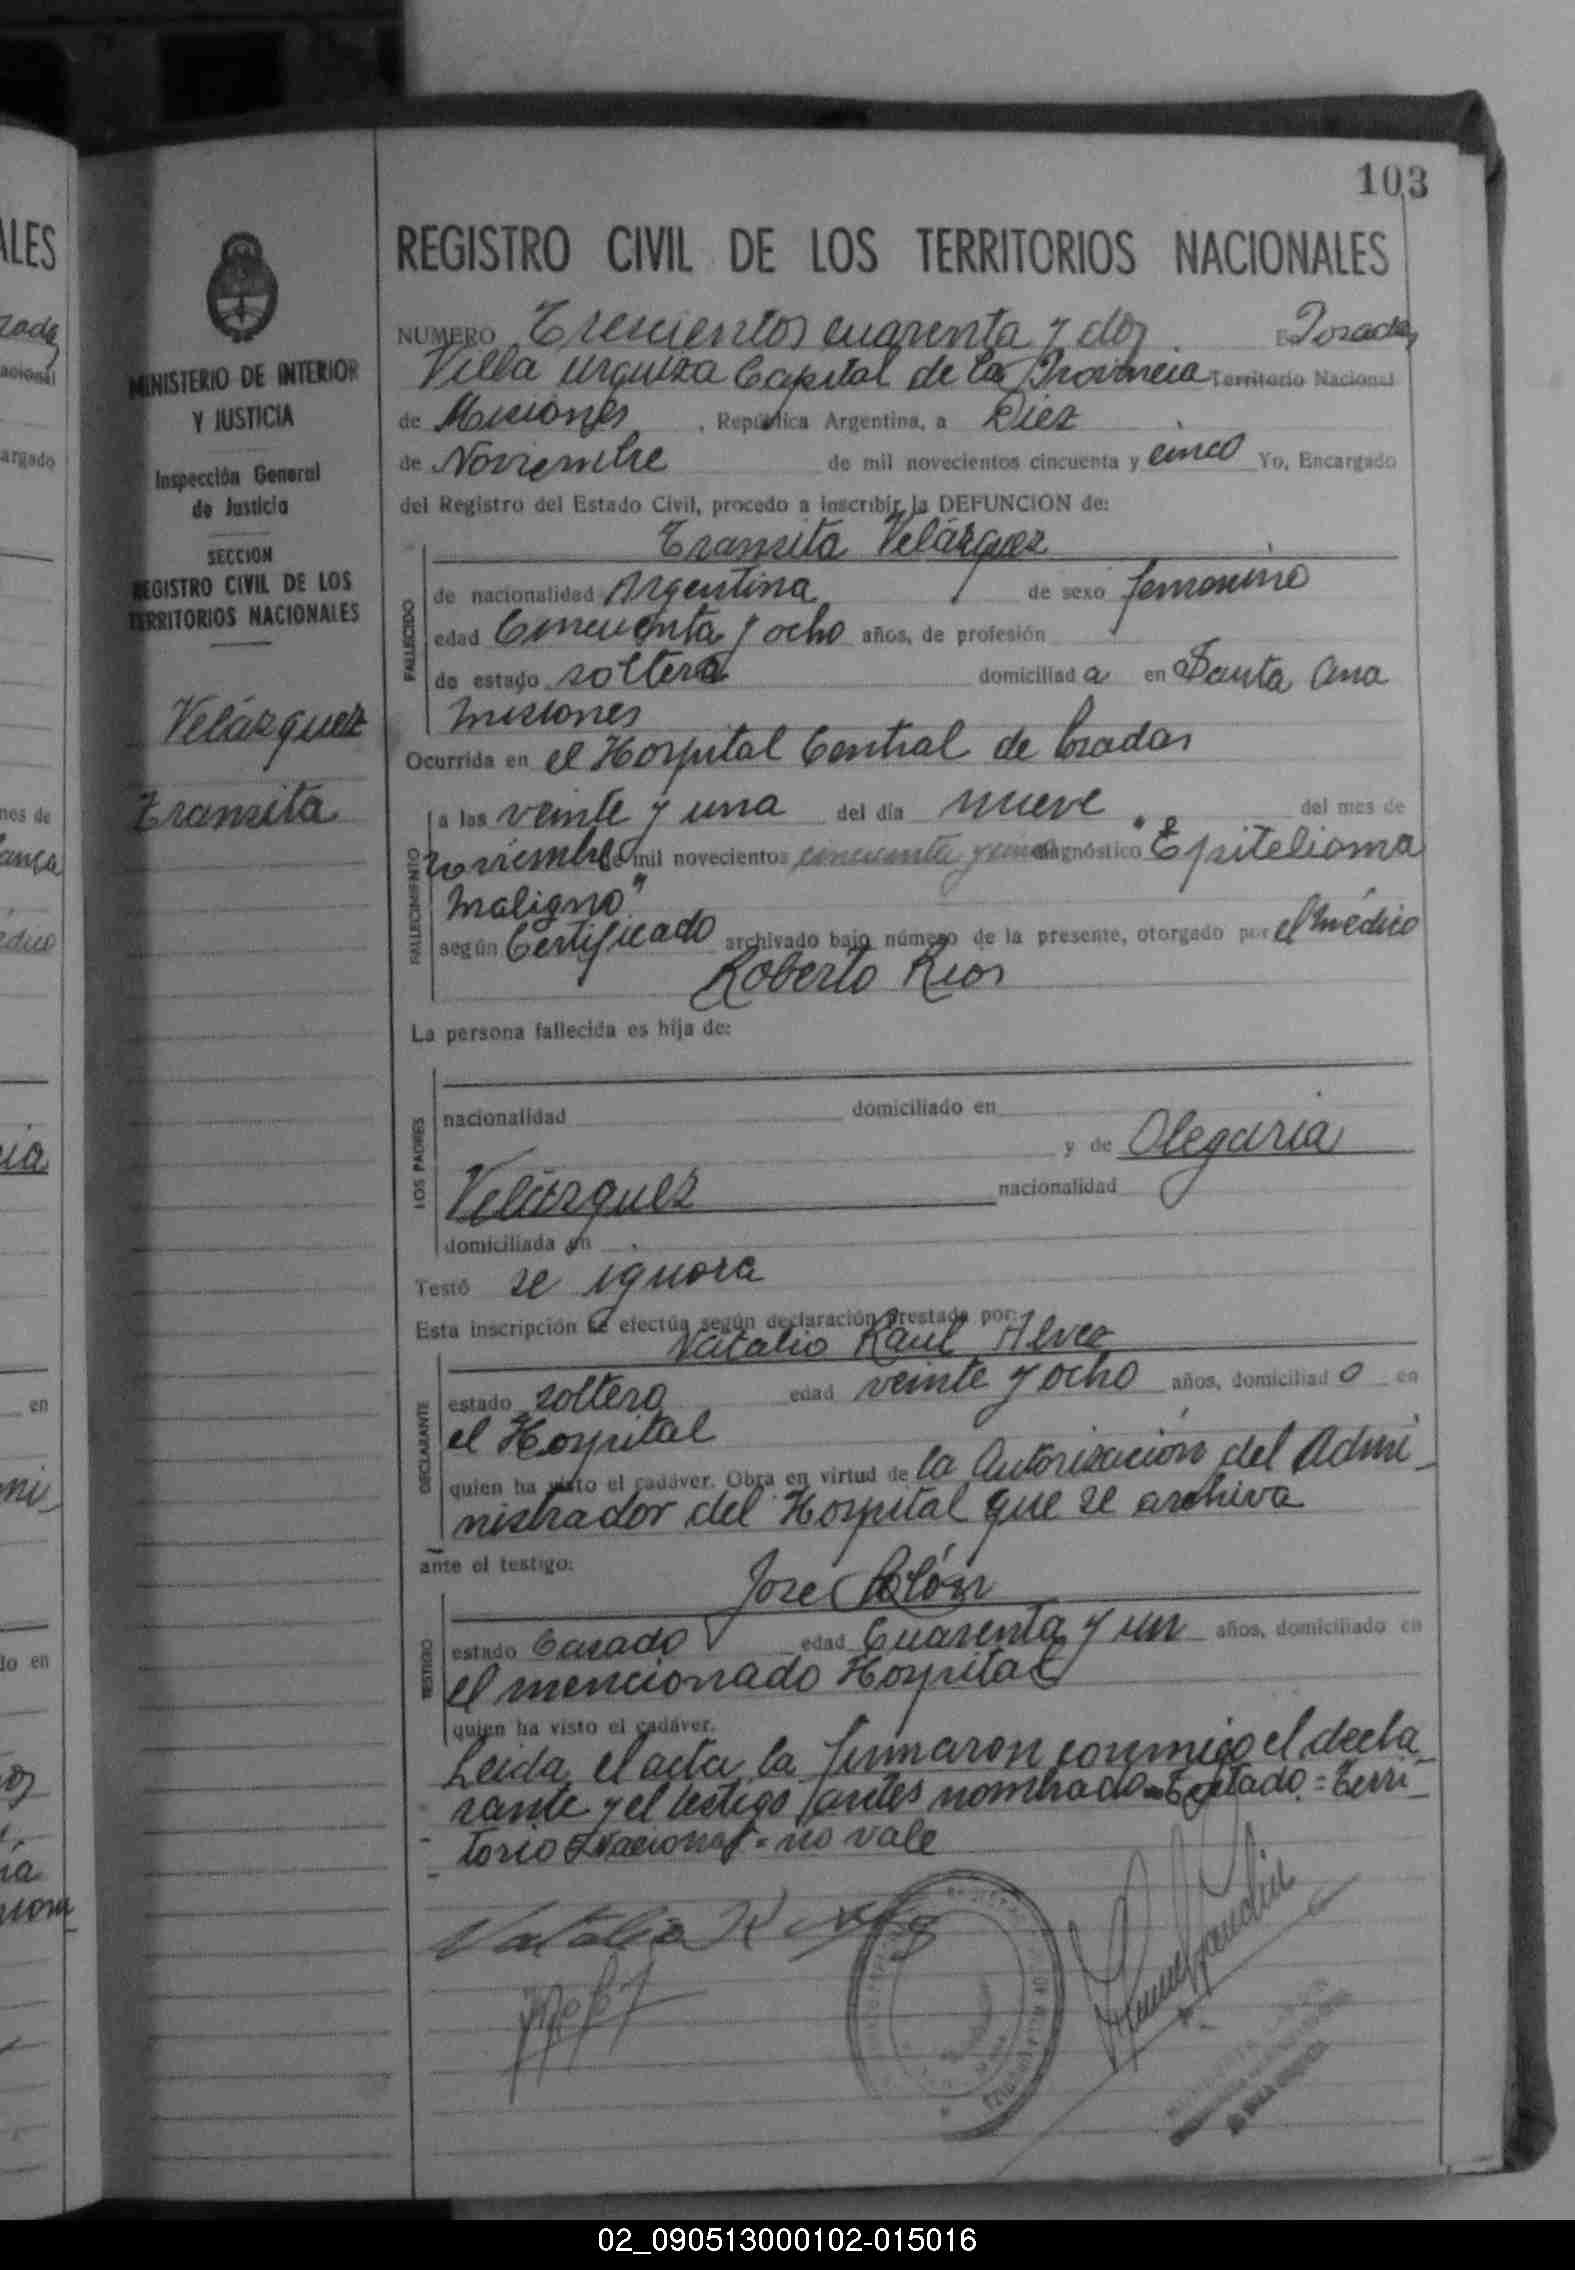 103
REGISTRO CIVIL DE LOS TERRITORIOS NACIONALES
MINISTERIO DE INTERIOR
Y JUSTICIA
Inspección General
de Justicia
SECCION
REGISTRO CIVIL DE LOS
TERRITORIOS NACIONALES
Velázquez
Transita
NUMERO Trescientos cuarenta y dos En Posadas
Villa Urquiza Capital de la Provincia Territorio Nacional
de Misiones, República Argentina, a Diez
de Noviembre de mil novecientos cincuenta y cinco Yo, Encargado
del Registro del Estado Civil, procedo a inscribir la DEFUNCION de:
Transita Velázquez
FALLECIDO
de nacionalidad Argentina de sexo femenino
edad Cincuenta y ocho años, de profesión
de estado soltera domiciliad a en Santa Ana
Misiones
Ocurrida en el Hospital Central de
FALLECIMIENTO
a las veinte y una del día nueve del mes de
Noviembre de mil novecientos cincuenta y cinco diagnóstico "Epitelioma
maligno"
según Certificado archivado bajo número de la presente, otorgado por el médico
Roberto Rios
La persona fallecida es hija de:
LOS PADRES
nacionalidad domiciliado en
y de Olegaria
Velázquez nacionalidad
domiciliada en
Testó se ignora
Esta inscripción se efectúa según declaración prestada por:
Natalio Raul Alvez
DECLARANTE
estado soltero edad veinte y ocho años, domiciliad o en
el Hospital
quien ha visto el cadáver. Obra en virtud de la Autorización del Admi-
nistrador del Hospital que se archiva
ante el testigo:
José Colón
TESTIGO
estado Casado edad Cuarenta y un años, domiciliado en
el mencionado Hospital
quien ha visto el cadáver.
Leida el acta, la firmaron conmigo el decla-
rante y el testigo antes nombrado = Testado = Terri-
torio Nacional = no vale
02_090513000102-015016